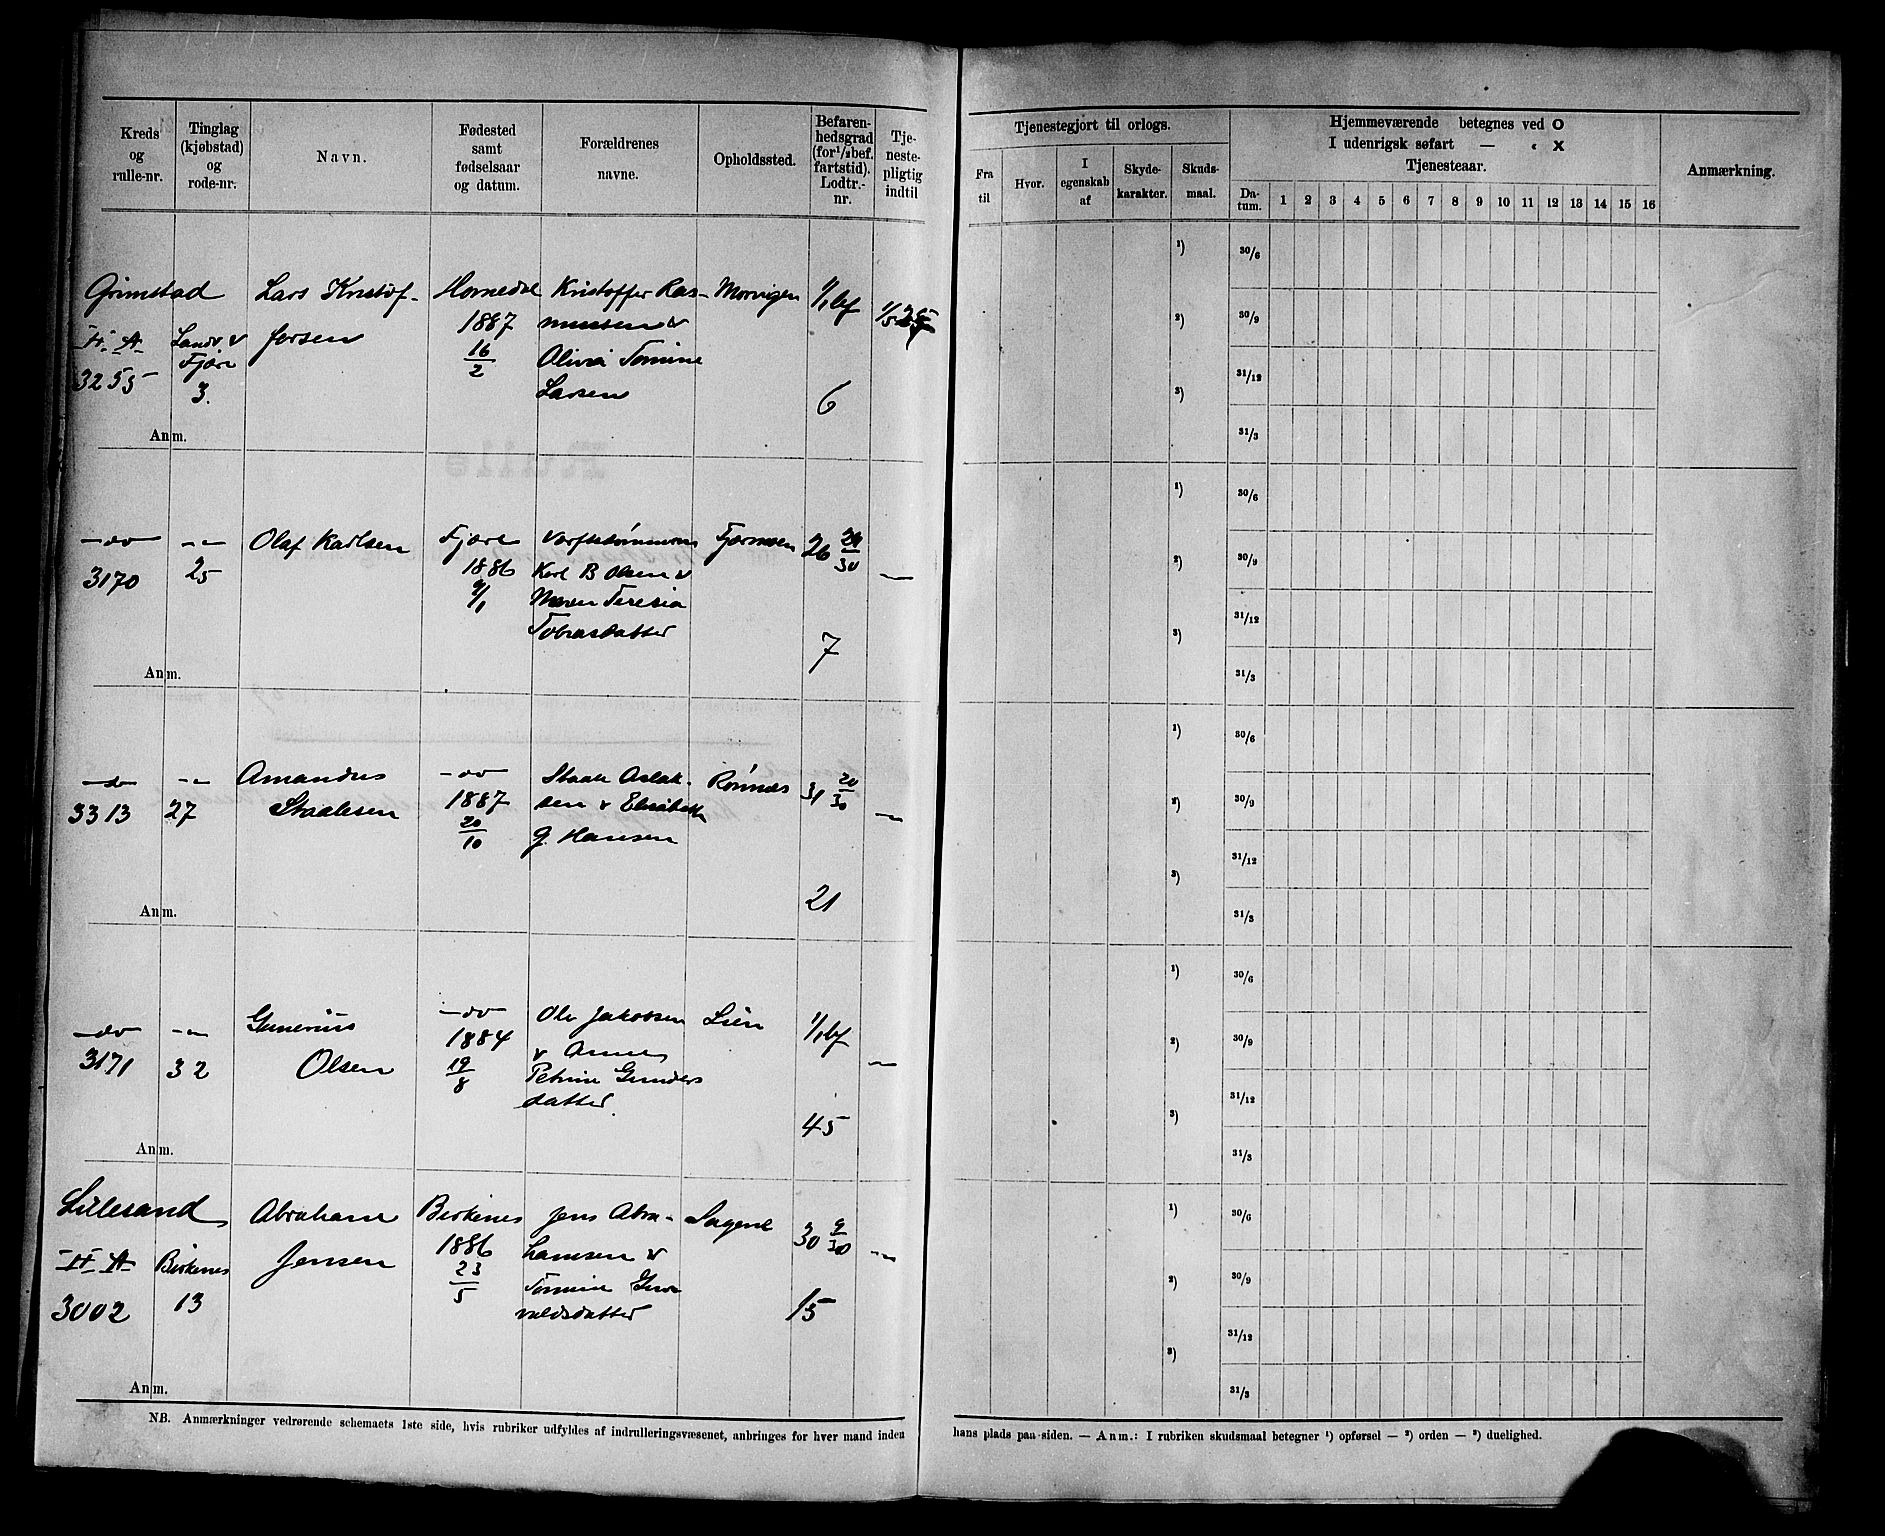 Kreds og rulle-nr.
Tinglag (kjøbstad) og rode-nr.
Navn.
Fødested samt fødselsaar og datum.
Forældrenes navne.
Opholdssted.
Befarenhedsgrad (for ½ bef. fartstid). Lodtr.-nr.
Tjenestepligtig indtil
Tjenestegjort til orlogs.
Fra til
Hvor.
I egenskab af
Skydekarakter.
Skudsmaal.
Hjemmeværende betegnes ved O
I udenrigsk søfart — « X
Tjenesteaar.
Datum. 1 2 3 4 5 6 7 8 9 10 11 12 13 14 15 16
Anmærkning.
Grimstad
II A
3255
Landv v
Fjære
3.
Lars Kristof-
fersen
Hornedal
1887
16/2
Kristoffer Ras-
mussen v
Olivia Tomine
Larsen
Morvigen
1/1 bf
6
Anm.
1) 30/6
2) 30/9
3) 31/12
31/3
— do —
3170
— " —
25
Olaf Karlsen
Fjære
1886
Karl B Olsen v
Maren Teresia
Tobiasdatter
26
7
—
Anm.
1) 30/6
2) 30/9
3) 31/12
31/3
— do —
3313
— " —
27
Amandus
Staalesen
— do —
1887
20/10
Staale Aslak-
sen v Elisabeth
G. Hansen
Rønnes
31 20/30
21
—
Anm.
1) 30/6
2) 30/9
3) 31/12
31/3
— do —
3171
— " —
32
Gunerius
Olsen
— do —
1884
19/8
Ole Jakobsen
v Anne
Petrine Gunders
datter.
Lien
1/1 bf
45
—
Anm.
1) 30/6
2) 30/9
3) 31/12
31/3
Lillesand
II A
3002
Birkenes
13
Abraham
Jensen
Birkenes
1886
23/5
Jens Abra-
hamsen v
Tomine
valdsdatter
Sagene
30 9/30
15
—
Anm.
1) 30/6
2) 30/9
3) 31/12
31/3
NB. Anmærkninger vedrørende schemaets 1ste side, hvis rubriker udfyldes af indrulleringsvæsenet, anbringes for hver mand inden
hans plads paa siden. — Anm.: I rubriken skudsmaal betegner ¹) opførsel — ²) orden — ³) duelighed.